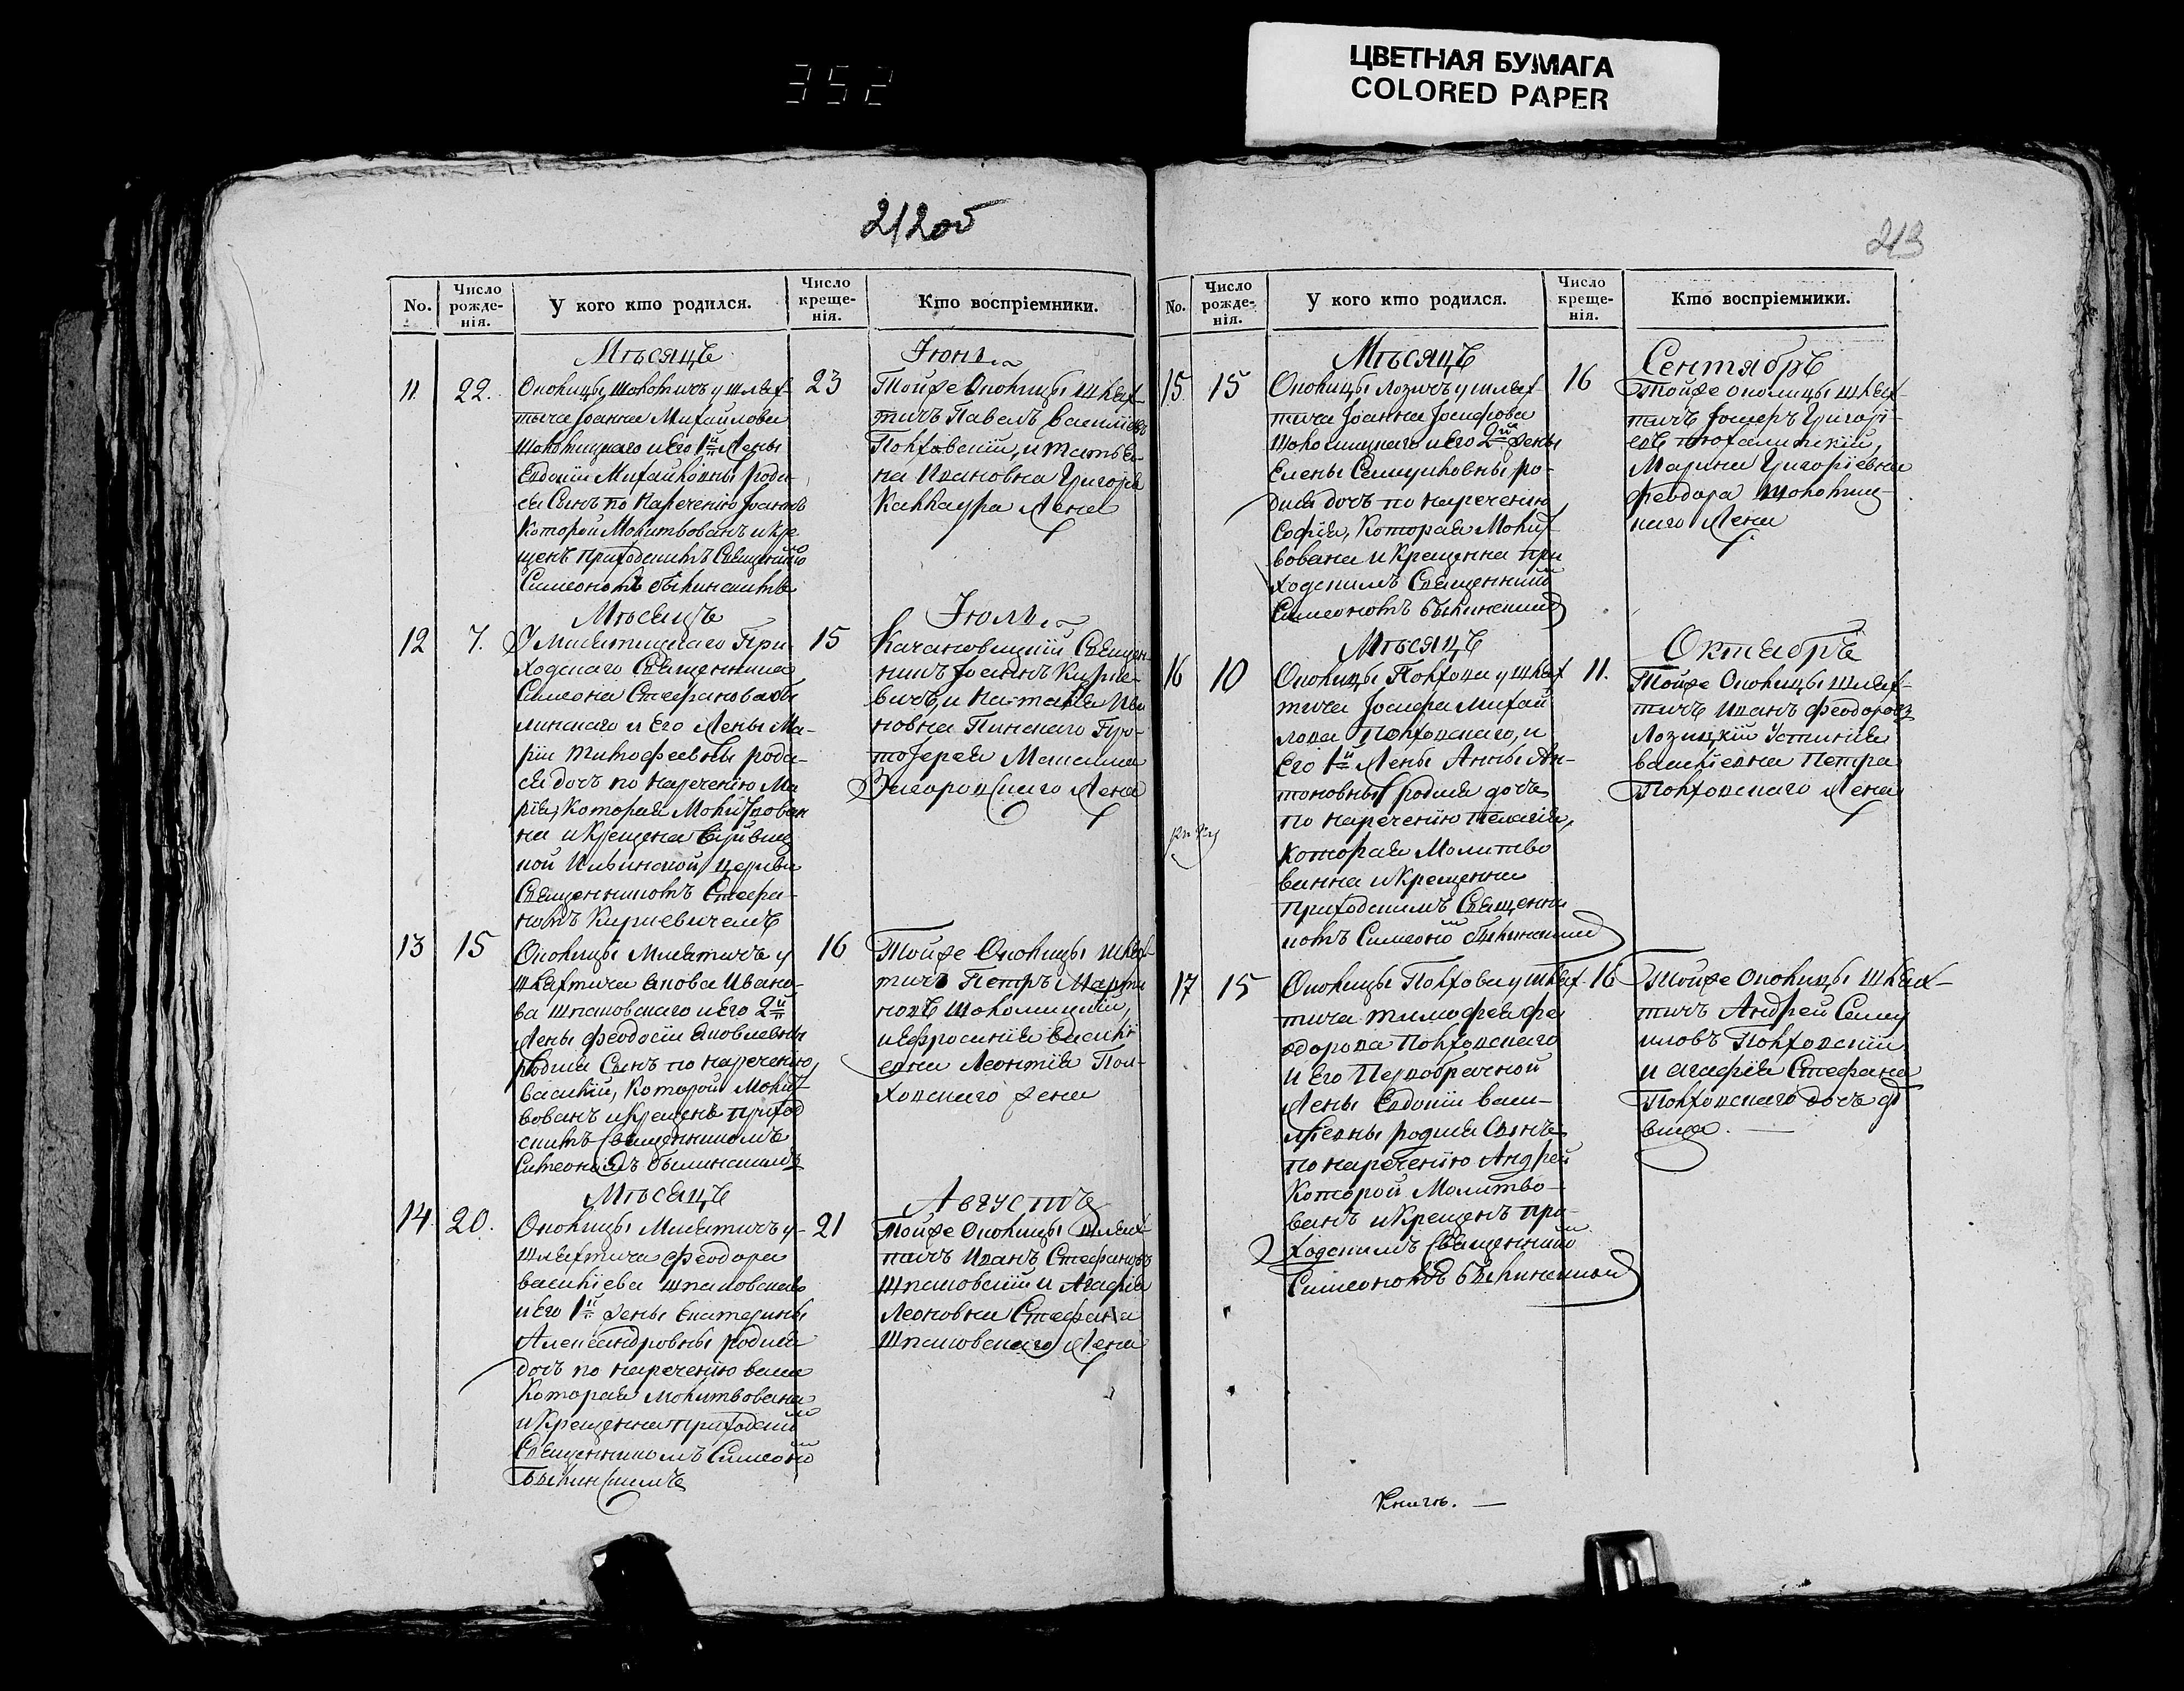 352
ЦВЕТНАЯ БУМАГА
COLORED PAPER
212об
No.
Число рожденія.
У кого кто родился.
Число крещенія.
Кто воспріемники.
Мѣсяцъ
Іюнь
11.
22.
Околицы Шоломичъ у шлях-
тича Іоанна Михайлова
Шоломицкаго и Его 1й Жены
Евдокіи Михайловны роди
ся Сынъ по нареченію Іоаннъ
Которой Молитвованъ и кре
щенъ приходскимъ Священнико
Симеономъ Былинскимъ
23
Тойже Околицы шлях-
тичъ Павелъ Василіевъ
Полховскій, и Татья-
на Ивановна Григорія
Жена
Мѣсяцъ
Іюль
12
7.
У Приходскаго Священника
Симеона Стефанова Бы
линскаго и Его Жены Ма-
ріи Тимофеевны роди-
ся дочь по нареченію Ма
рія, Которая Молитвован
на и Крещена
ной Ильинской церкви
Священникомъ Стефа-
номъ Киркевичемъ
15
Качановицкій Священ-
никъ Іоаннъ Кирке-
вичъ, и Наталія Ива
новна Пинскаго Про-
тоіерея Максима
Жена
13
15
Околицы у
шляхтича Якова Ивано-
ва Шпаковскаго и Его 2й
Жены Феодосіи Яковлевны
родися Сынъ по нареченію
Василій, Которой Молит
вованъ и Крещенъ приход
скимъ Священникомъ
Симеономъ Былинскимъ
16
Тойже Околицы шлях
тичъ Петръ Марти
новъ Шоломицкій,
и Ефросинія Василі
евна Леонтія Пол-
ховскаго жена
Мѣсяцъ
Августъ
14.
20.
Околицы у
шляхтича Феодора
Василіева Шпаковскаго
и Его 1й жены Екатерины
Александровны родися
дочь по нареченію
Которая Молитвована
и Крещенна приходским
Священникомъ Симеоно
Былинскимъ
21
Тойже Околицы шлях
тичъ Иванъ Стефановъ
Шпаковскій и Агафія
Леоновна Стефана
Шпаковскаго Жена
213
No.
Число рожденія.
У кого кто родился.
Число крещенія.
Кто воспріемники.
Мѣсяцъ
Сентябрь
15
15
Околицы Лозичъ у шлях-
тича Іоанна Іосифова
Шоломицкаго и Его 2й жены
Елены Семуиловны ро-
дися дочь по нареченію
Софія, Которая Молит
вована и Крещенна при
ходскимъ Священником
Симеономъ Былинским
16
Тойже околицы шлях-
тичъ Іосифъ Григорі-
евъ
Марина Григоріевна
Феодора Шоломиц-
каго Жена
Мѣсяцъ
Октябрь
16
10
Околицы Полхова у шлях
тича Іосифа Михай
лова Полховскаго, и
Его 1й Жены Анны Ан-
тоновны родися дочь
по нареченію Пелагія,
Которая Молитво
ванна и Крещенна
приходскимъ Священни
комъ Симеоно Былинским
11.
Тойже Околицы шлях-
тичъ Иванъ Феодоровъ
Лозицкій Устинія
Василіевна Петра
Полховскаго Жена
17
15
Околицы Полхова у шлях-
тича Тимофея Фе
одорова Полховскаго
и Его Первобрачной
Жены Евдокіи Васи-
ліевны родися Сынъ
по нареченію Андрей
Которой Молитво-
ванъ и Крещенъ при-
ходскимъ Священником
Симеономъ Былинским
16
Тойже Околицы шлях-
тичъ Андрей Сему
иловъ Полховскій
и Агафія Стефана
Полховскаго дочь дѣ
вица.